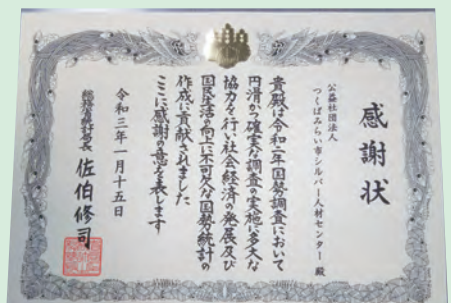 感謝状
公益社団法人
つくばみらい市シルバー人材センター 殿
貴殿は令和二年国勢調査において
円滑かつ確実な調査の実施に多大な
協力を行い社会経済の発展及び
国民生活の向上に不可欠な国勢統計の
作成に貢献されました
ここに感謝の意を表します
令和三年一月十五日
総務省統計局長 佐伯修司